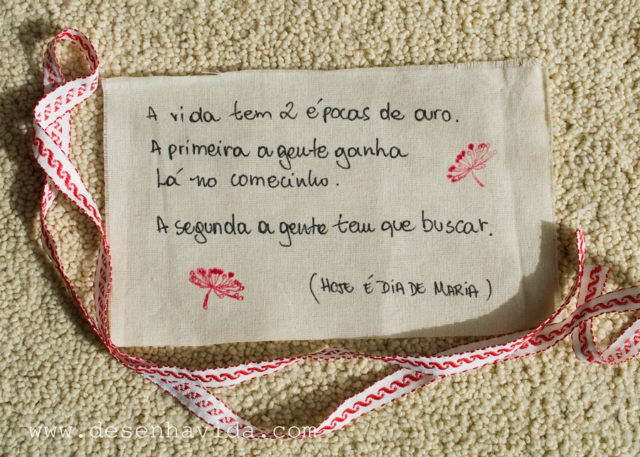 A vida tem 2 épocas de ouro.
A primeira a gente ganha
Lá no comecinho.
A segunda a gente tem que buscar.
(HOJE É DIA DE MARIA)
www.desenhavida.com